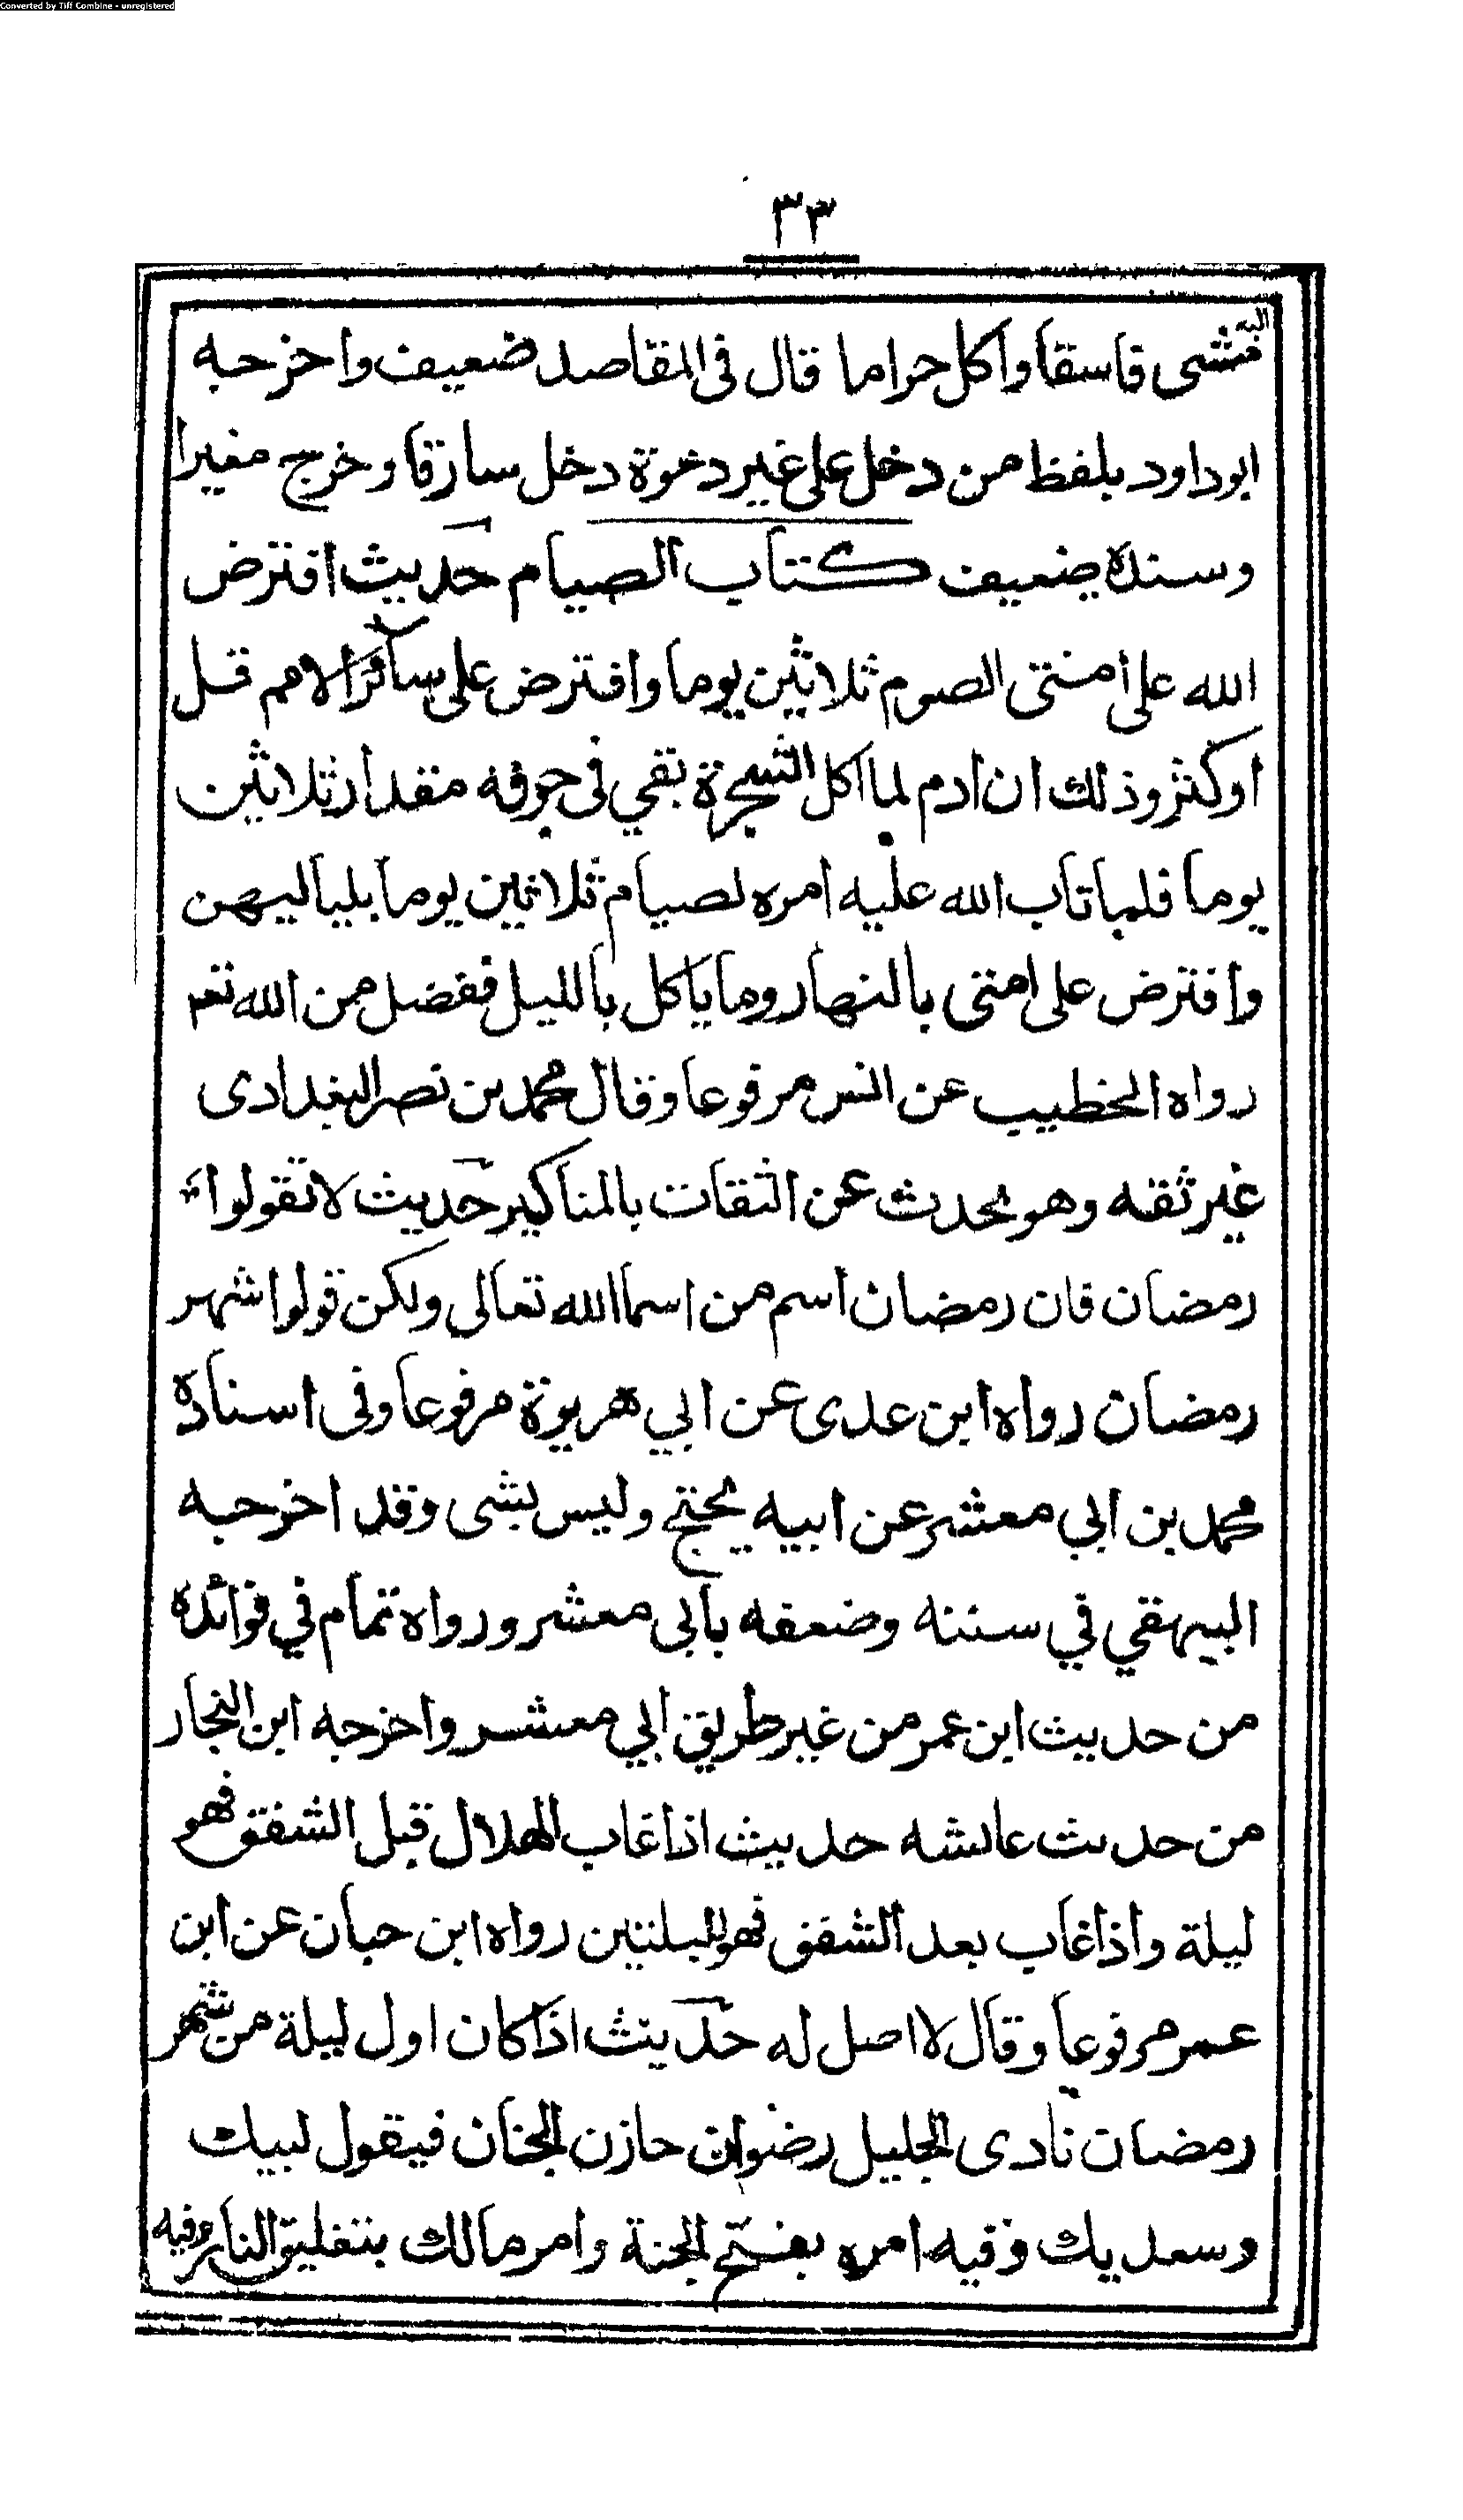 Converted by Tiff Combine - unregistered
٣٣
اليه فمشى فاسقا واكل حراما قال فى المقاصد ضعيف واخرجه
ابوداود بلفظ من دخل على غير دعوة دخل سارقا وخرج مغيرا
وسنده ضعيف كتاب الصيام حديث افترض
الله على أمتى الصوم ثلاثين يوما وافترض على سائر الامم قل
او كثر وذلك ان ادم لما اكل الشجرة بقي فى جوفه مقدار ثلاثين
يوما فلما تاب الله عليه امره لصيام ثلاثين يوما بلياليهن
وافترض على امتى بالنهار وما ياكل بالليل ففضل من الله تعم
رواه الخطيب عن انس مرفوعا وقال محمد بن نصر البغدادى
غير ثقه وهو يحدث عن الثقات بالمناكير حديث لا تقولوا
رمضان فان رمضان اسم من اسما الله تعالى ولكن قولوا شهر
رمضان رواه ابن عدى عن ابي هريرة مرفوعا وفى اسناده
محمد بن ابي معشر عن ابيه يحتج وليس بشى وقد اخرجه
البيهقي في سننه وضعفه بابى معشر ورواه تمام في فوائده
من حديث ابن عمر من غير طريق ابي معشر واخرجه ابن النجار
من حديث عائشه حديث اذا غاب الهلال قبل الشفق فهو
ليلة واذا غاب بعد الشفق فهو لليلتين رواه ابن حبان عن ابن
عمر مرفوعا وقال لا اصل له حديث اذا كان اول ليلة من شهر
رمضان نادى الجليل رضوان خازن الجنان فيقول لبيك
وسعديك وفيه امره بفتح الجنة وامر مالك بتغليق النار وفيه